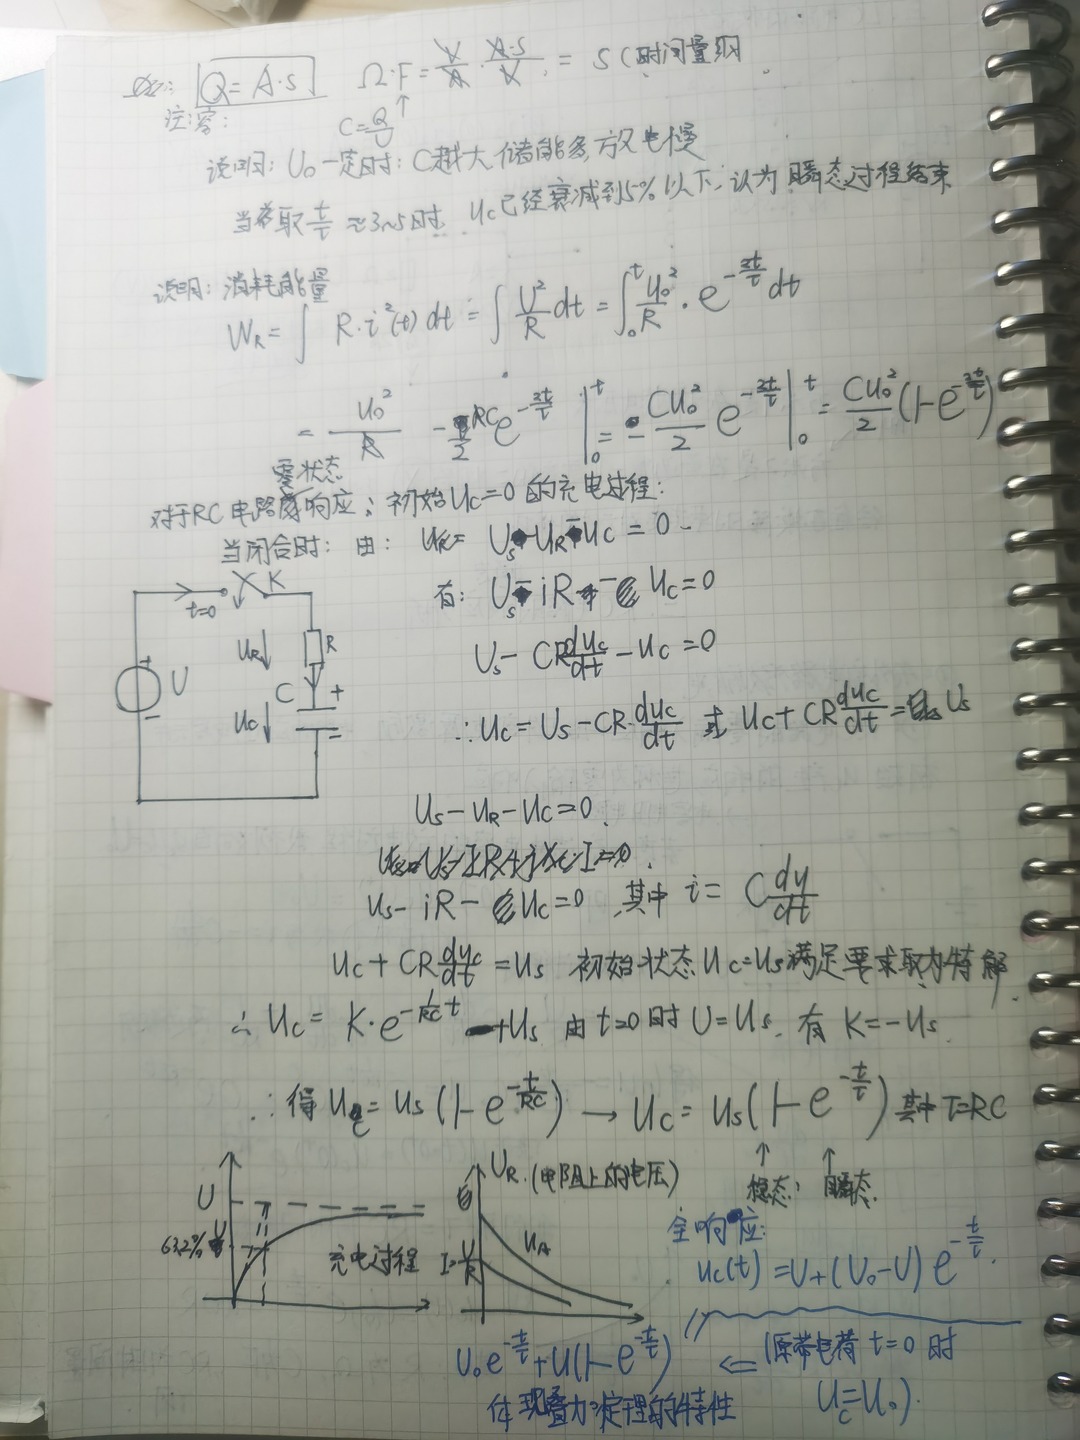 注意: Q = A·S Ω·F = V/A · A·S/V = S (时间量纲
C = Q/U
说明: U₀一定时: C越大储能多, 放电慢
当取 t/τ ≈ 3~5时 Uc已经衰减到5%以下, 认为瞬态过程结束
说明: 消耗能量
W_R = ∫ R·i²(t) dt = ∫ U²/R dt = ∫₀ᵗ U₀²/R · e^(-2t/τ) dt
= U₀²/R · -RC/2 e^(-2t/τ) |₀ᵗ = - CU₀²/2 e^(-2t/τ) |₀ᵗ = CU₀²/2 (1-e^(-2t/τ))
零状态
对于RC电路响应; 初始Uc=0的充电过程:
当闭合时: 由: U_R = Us - U_R - Uc = 0
有: Us - iR - Uc = 0
Us - CR duc/dt - Uc = 0
∴ Uc = Us - CR·duc/dt 或 Uc + CR duc/dt = Us
t=0 K
U_R R
U + -
Uc C + =
Us - U_R - Uc = 0
Us - iR - Uc = 0, 其中 i = C du/dt
Uc + CR duc/dt = Us 初始状态Uc=Us满足要求取为特解
∴ Uc = K·e^(-1/RC t) + Us 由t=0时 U=Us. 有 K=-Us
∴ 得 Uc = Us (1-e^(-t/RC)) → Uc = Us (1-e^(-t/τ)) 其中 τ=RC
↑稳态 ↑瞬态
U
63.2%U
充电过程
U_R (电阻上的电压)
I=U/R
U_A
全响应:
Uc(t) = U+(U₀-U) e^(-t/τ)
U₀e^(-t/τ)+U(1-e^(-t/τ)) ⇐ (原带电荷 t=0时
Uc=U₀).
体现叠加定理的特性